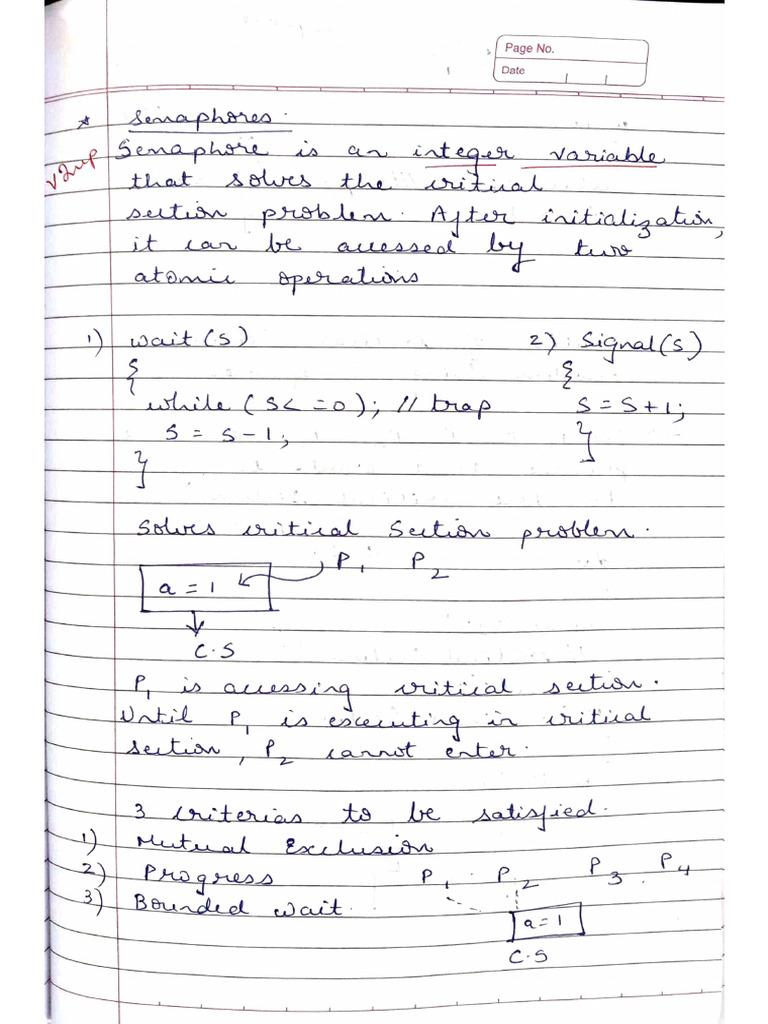 Page No.
Date
* Semaphores.
v2mp Semaphore is an integer variable
that solves the critical
section problem. After initialization,
it can be accessed by two
atomic operations
1) wait(s) 2) Signal(s)
{ {
while (s< =0); // trap s = s+1;
s = s-1; }
}
Solves critical Section problem.
P1 P2
a = 1
C.S
P1 is accessing critical section.
Until P1 is executing in critical
section, P2 cannot enter.
3 criterias to be satisfied.
1) Mutual Exclusion
2) Progress P1 P2 P3 P4
3) Bounded wait.
a=1
C.S